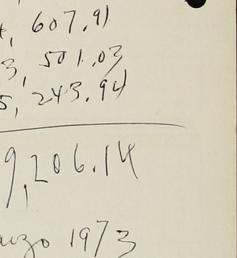 4, 607.91
3, 501.03
5, 243.94
9,206.14
1973